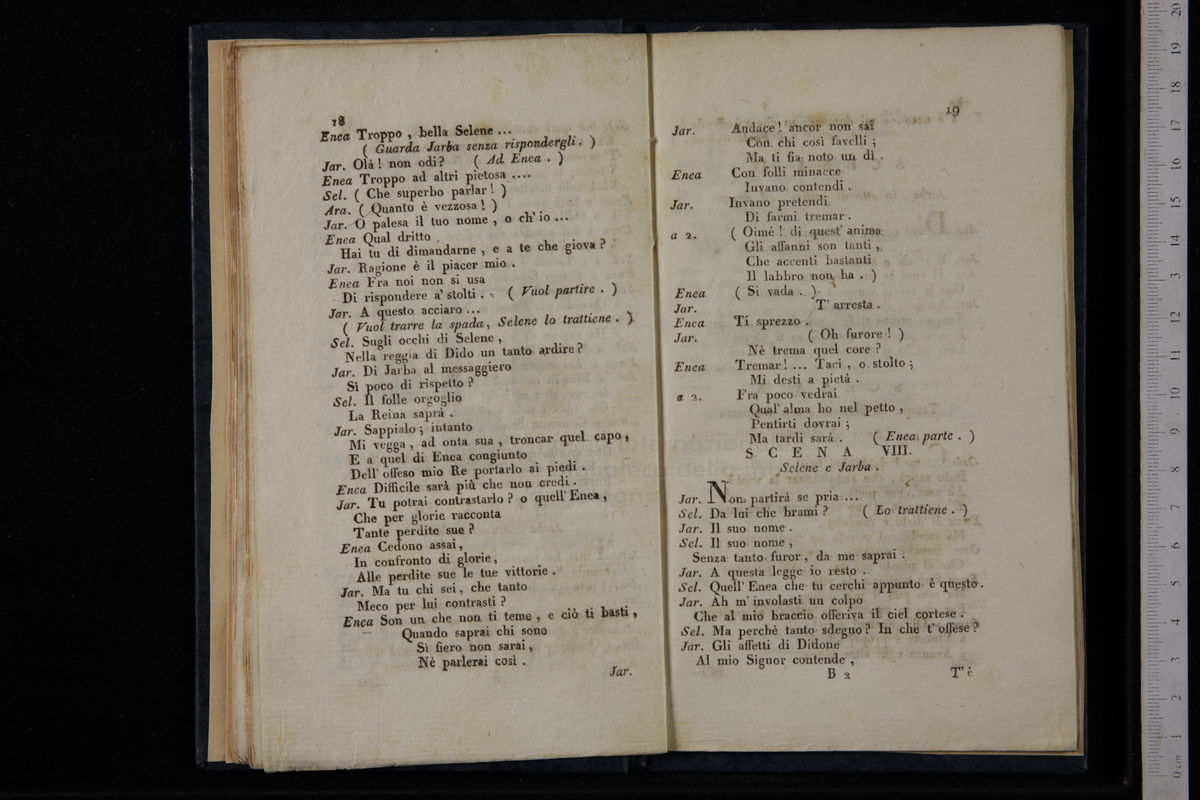 18
Enea Troppo , bella Selene ...
( Guarda Jarba senza rispondergli . )
Jar. Olà ! non odi ? ( Ad Enea . )
Enea Troppo ad altri pietosa ....
Sel. ( Che superbo parlar ! )
Ara. ( Quanto è vezzosa ! )
Jar. O palesa il tuo nome , o ch' io ...
Enea Qual dritto
Hai tu di dimandarne , e a te che giova ?
Jar. Ragione è il piacer mio .
Enea Fra noi non si usa
Di rispondere a' stolti . ( Vuol partire . )
Jar. A questo acciaro ...
( Vuol trarre la spada, Selene lo trattiene . )
Sel. Sugli occhi di Selene ,
Nella reggia di Dido un tanto ardire ?
Jar. Di Jarba al messaggiero
Sì poco di rispetto ?
Sel. Il folle orgoglio
La Reina saprà .
Jar. Sappialo ; intanto
Mi vegga , ad onta sua , troncar quel capo ,
E a quel di Enea congiunto
Dell' offeso mio Re portarlo ai piedi .
Enea Difficile sarà più che non credi .
Jar. Tu potrai contrastarlo ? o quell' Enea ,
Che per glorie racconta
Tante perdite sue ?
Enea Cedono assai ,
In confronto di glorie ,
Alle perdite sue le tue vittorie .
Jar. Ma tu chi sei , che tanto
Meco per lui contrasti ?
Enea Son un che non ti teme , e ciò ti basti ,
Quando saprai chi sono
Sì fiero non sarai ,
Nè parlerai così .
Jar.
19
Jar. Audace ! ancor non sai
Con chi così favelli ;
Ma ti fia noto un dì .
Enea Con folli minacce
Invano contendi .
Jar. Invano pretendi
Di farmi tremar .
a 2. ( Oimè ! di quest' anima
Gli affanni son tanti ,
Che accenti bastanti
Il labbro non ha . )
Enea ( Si vada . )
Jar. T' arresta .
Enea Ti sprezzo .
Jar. ( Oh furore ! )
Nè trema quel core ?
Enea Tremar ! ... Taci , o stolto ;
Mi desti a pietà .
a 2. Fra poco vedrai
Qual' alma ho nel petto ,
Pentirti dovrai ;
Ma tardi sarà . ( Enea parte . )
S C E N A VIII.
Selene e Jarba .
Jar. Non partirà se pria ...
Sel. Da lui che brami ? ( Lo trattiene . )
Jar. Il suo nome .
Sel. Il suo nome ,
Senza tanto furor , da me saprai .
Jar. A questa legge io resto .
Sel. Quell' Enea che tu cerchi appunto è questo .
Jar. Ah m' involasti un colpo
Che al mio braccio offeriva il ciel cortese .
Sel. Ma perchè tanto sdegno ? In che t' offese ?
Jar. Gli affetti di Didone
Al mio Signor contende ,
B 2 T' è